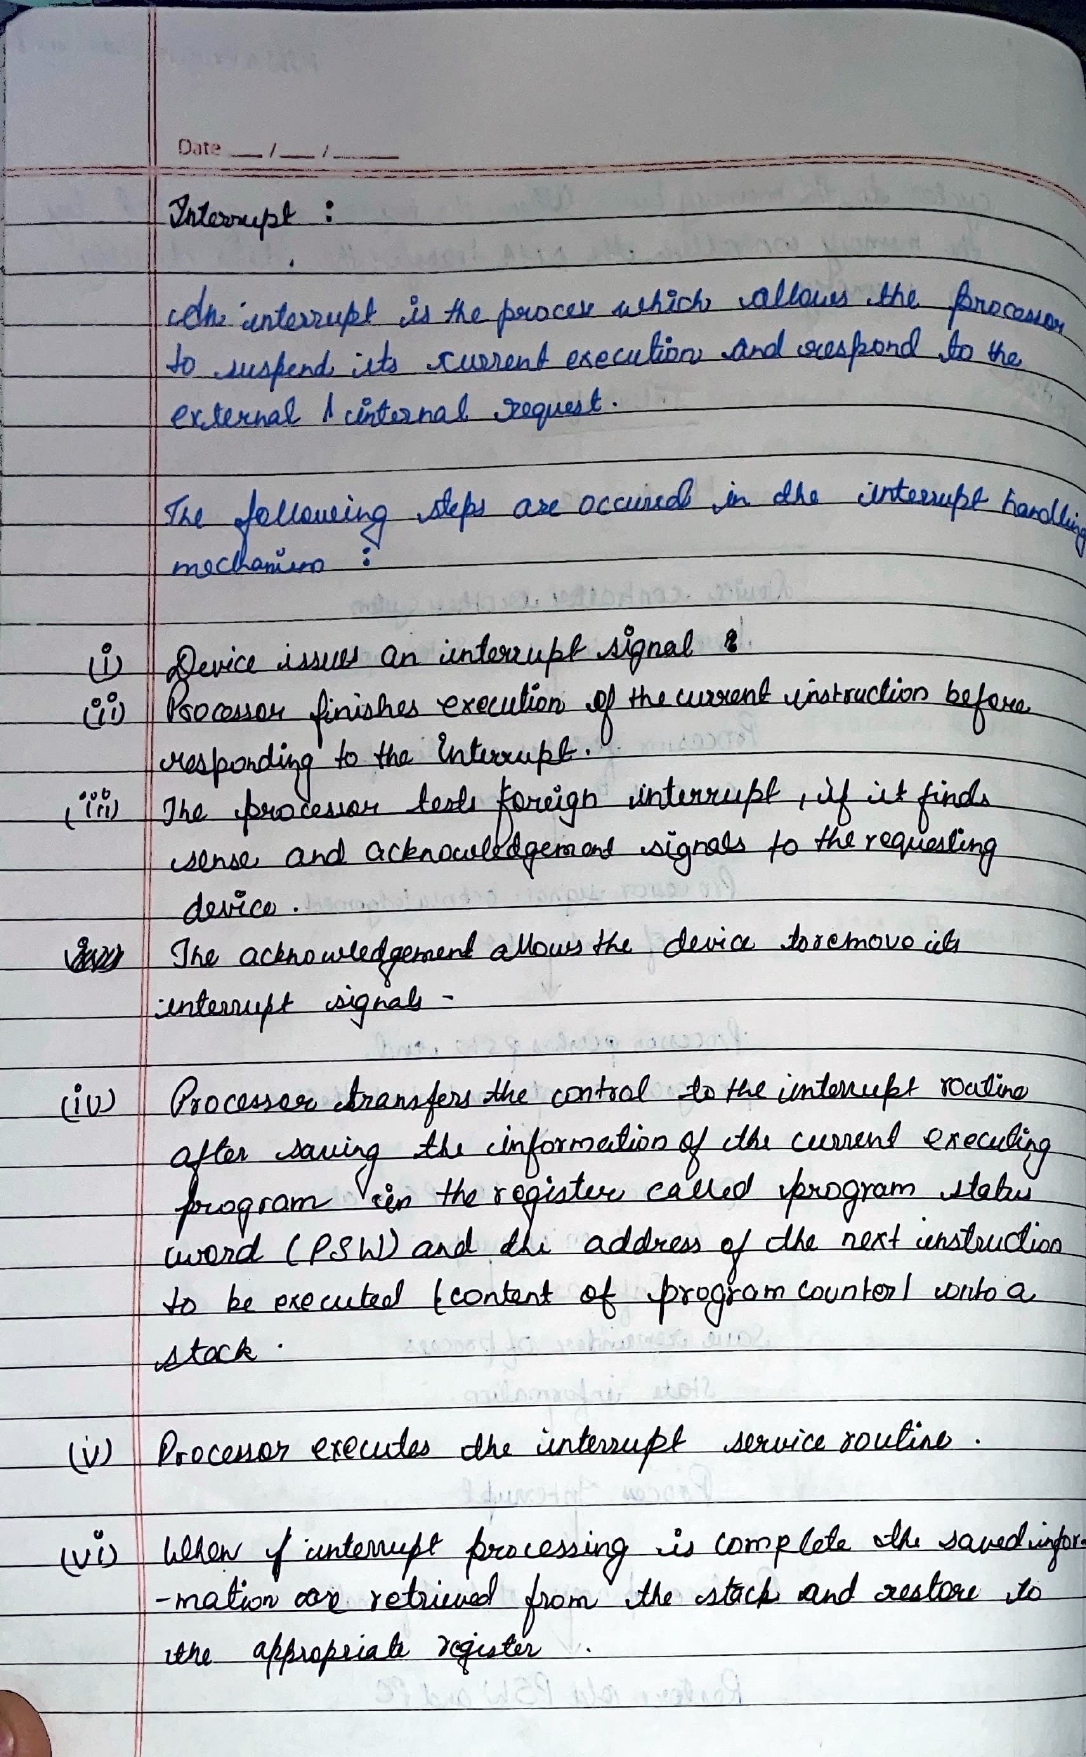 Date __/__/____
Interrupt :
An interrupt is the process which allows the processor
to suspend its current execution and respond to the
external / internal request.
The following steps are occured in the interrupt handling
mechanism :
(i) Device issues an interrupt signal
(ii) Processor finishes execution of the current instruction before
responding to the interrupt.
(iii) The processor tests foreign interrupt, if it finds
sense and acknowledgement signals to the requesting
device.
The acknowledgement allows the device to remove its
interrupt signals -
(iv) Processor transfers the control to the interrupt routine
after saving the information of the current executing
program in the register called program status
word (PSW) and the address of the next instruction
to be executed (content of program counter) onto a
stack.
(v) Processor executes the interrupt service routine.
(vi) When if interrupt processing is complete the saved infor-
-mation are retrieved from the stack and restore to
the appropriate register.